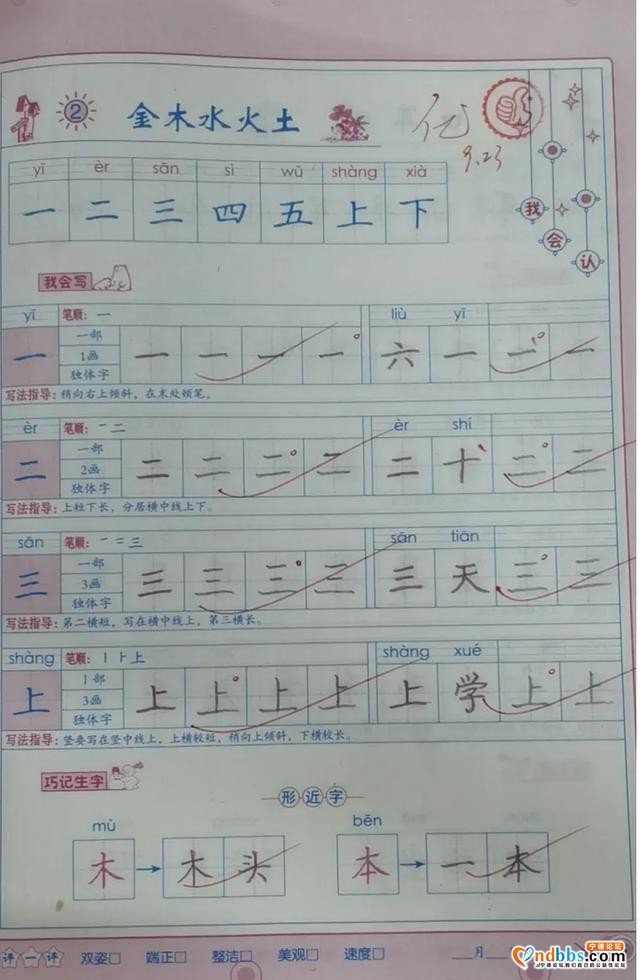 ② 金木水火土 优
9.23
yī èr sān sì wǔ shàng xià
一 二 三 四 五 上 下
我会认
我会写
yī 笔顺：一 liù yī
一 一部 1画 独体字 一 一 一 一 六 一 一 一
写法指导：稍向右上倾斜，在末处顿笔。
èr 笔顺：一 二 èr shí
二 一部 2画 独体字 二 二 二 二 二 十 二 二
写法指导：上短下长，分居横中线上下。
sān 笔顺：一 二 三 sān tiān
三 一部 3画 独体字 三 三 三 三 三 天 三 三
写法指导：第二横短，写在横中线上，第三横长。
shàng 笔顺：丨 ⺊ 上 shàng xué
上 丨部 3画 独体字 上 上 上 上 上 学 上 上
写法指导：竖要写在竖中线上，上横较短，稍向上倾斜，下横较长。
巧记生字
形近字
mù běn
木 → 木头 本 → 一本
评一评 双姿□ 端正□ 整洁□ 美观□ 速度□ 月
宁德论坛
ndbbs.com